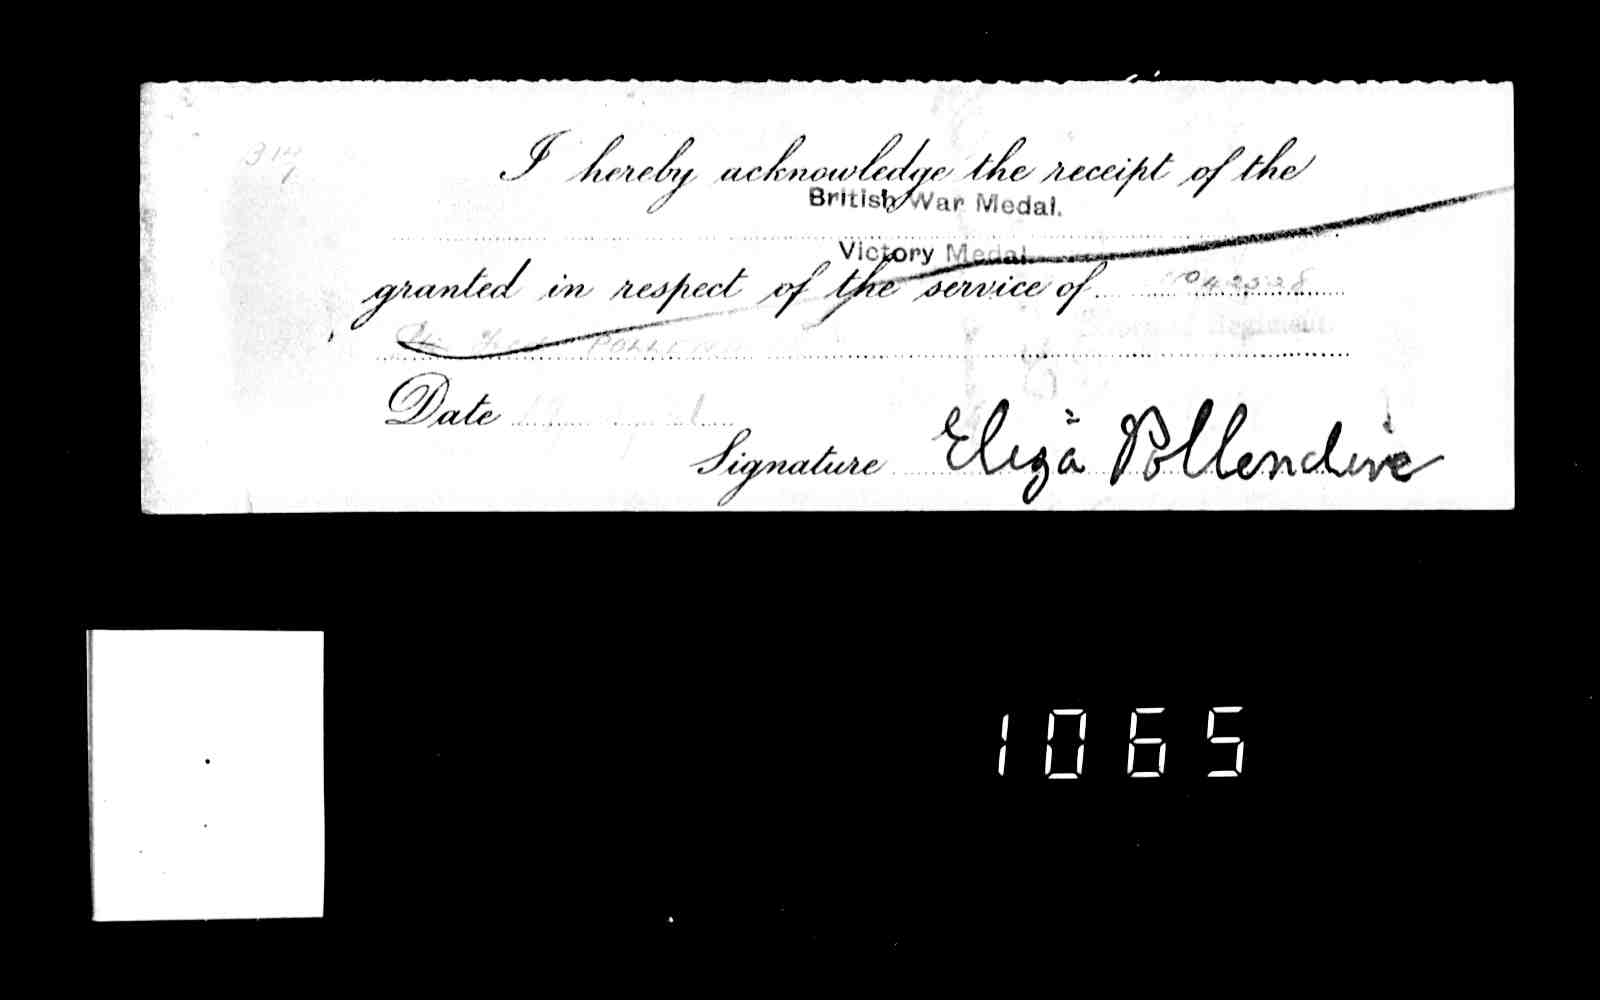 I hereby acknowledge the receipt of the
British War Medal.
Victory Medal.
granted in respect of the service of
Date
Signature Eliza Pollendine
1065